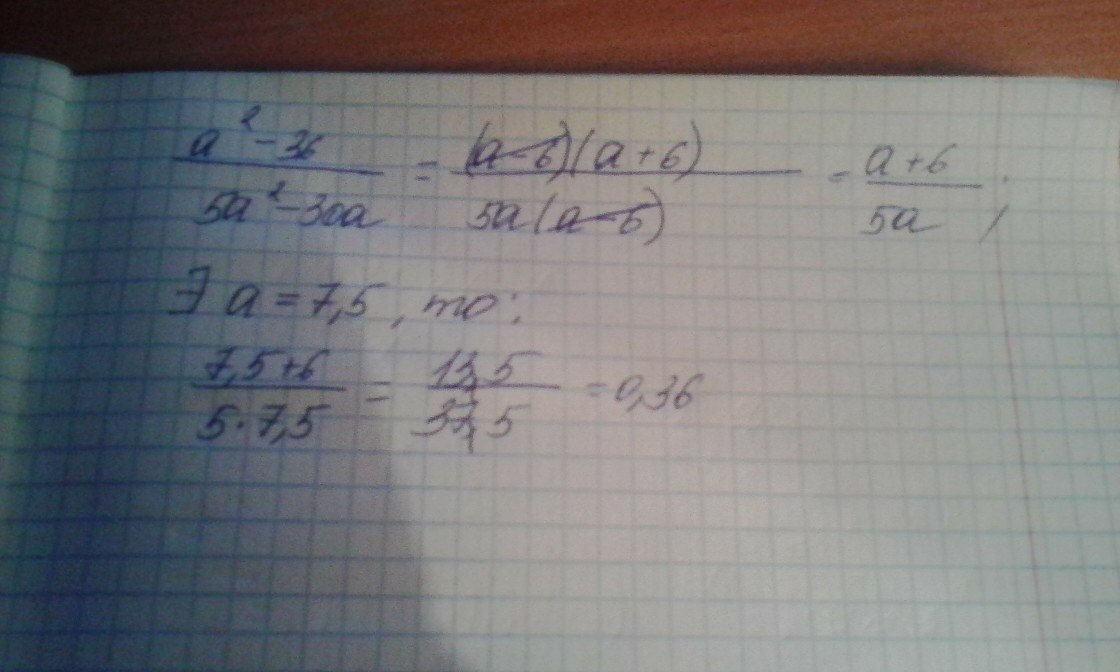 a² - 36 / 5a² - 30a = (a - 6)(a + 6) / 5a(a - 6) = a + 6 / 5a ;
∃ a = 7,5, то :
7,5 + 6 / 5 · 7,5 = 13,5 / 37,5 = 0,36